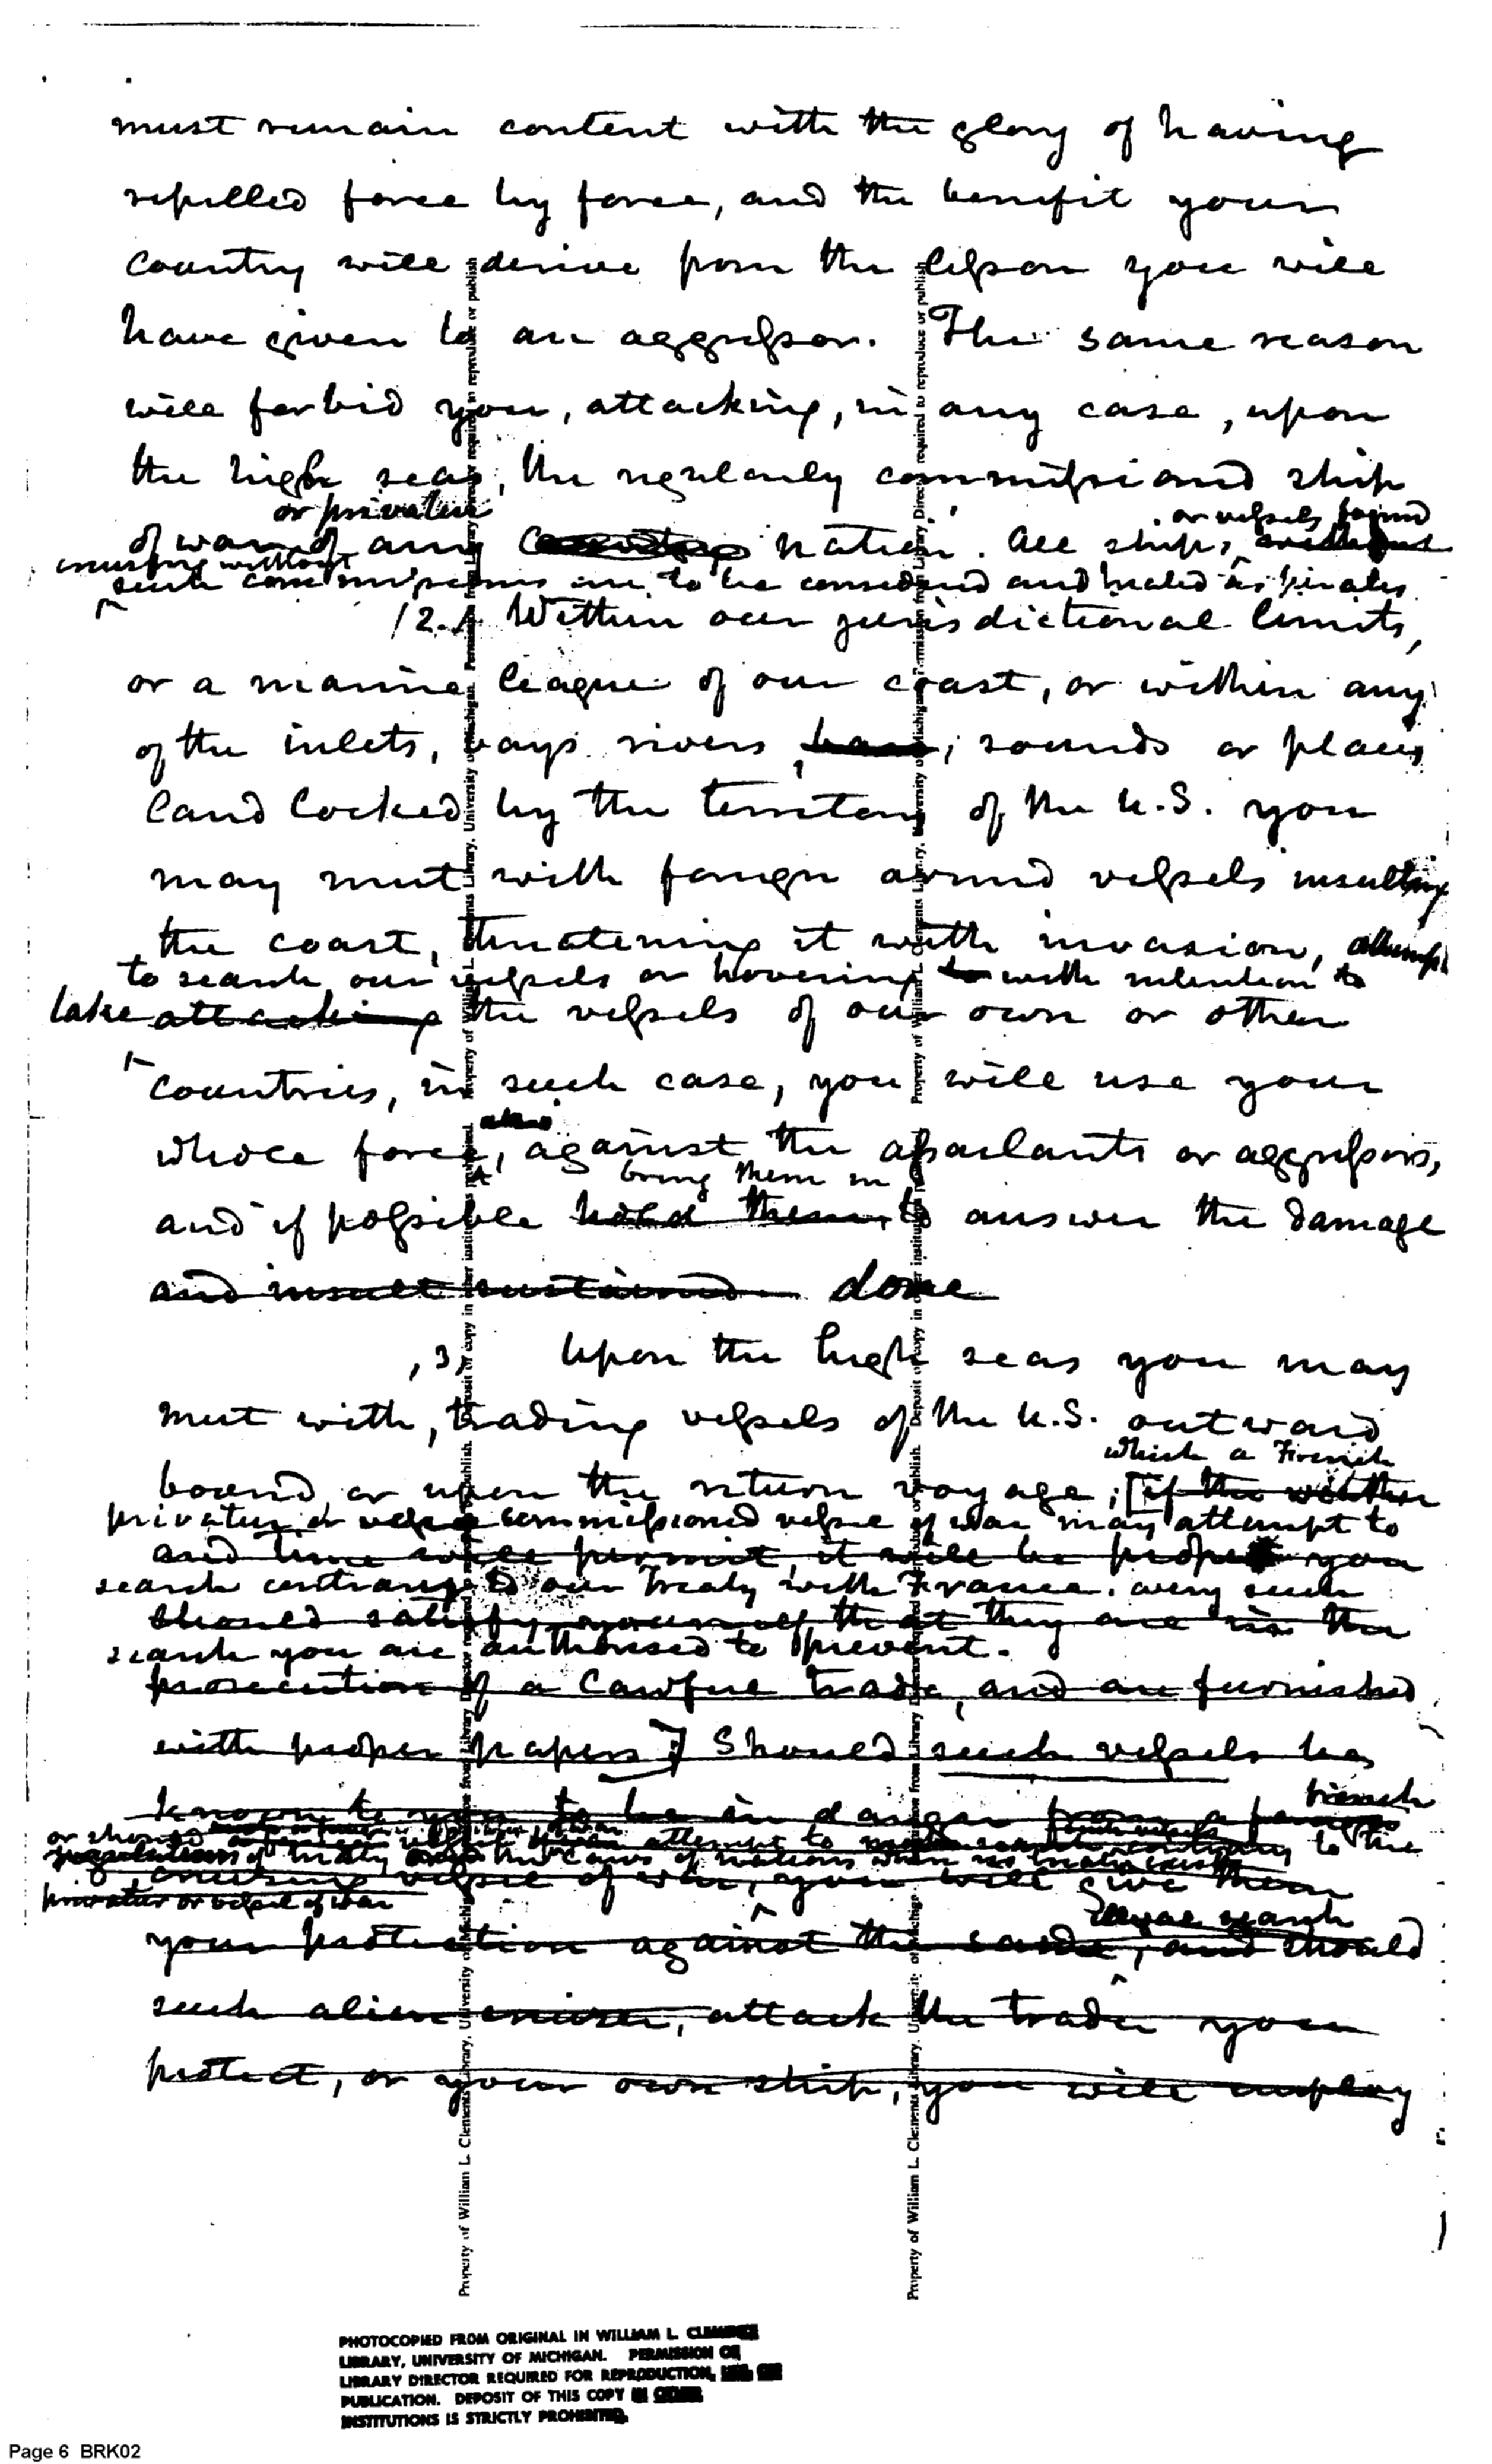 must remain content with the glory of having
repelled force by force, and the benefit your
Country will derive from the lesson you will
have given to an aggressor. The same reason
will forbid you, attacking, in any case, upon
the high seas, the regularly commissioned ship
or privateer
or vessels found
of war of any nation. All ships,
cruising without
such commissions are to be considered and treated as pirates.
/2./ Within our jurisdictional limits,
or a marine league of our coast, or within any
of the inlets, bays rivers, sounds or places
land locked by the territory of the U.S. you
may meet with foreign armed vessels insulting
the coast, threatening it with invasion, attempt
to search our vessels or hovering to with intention to
take attacking the vessels of our own or other
Countries, in such case, you will use your
whole force, against the assailants or aggressors,
bring them in
and if possible hold them, to answer the damage
and insult sustained done
,3, Upon the high seas you may
meet with, trading vessels of the U.S. outward
which a French
bound or upon the return voyage; [if the weather
privateer or commissioned vessel of war may attempt to
and time will permit, it will be proper you
search contrary to our Treaty with France. every such
should satisfy yourself that they are in the
search you are authorised to prevent.
prosecution of a lawful trade, and are furnished
with proper papers] Should such vessels be,
French
known to you to be in danger from a
or should attempt to contrary to the
of treaty the laws of nations when no
cruising vessel of war, you will give them
privateer or vessel of war
search
your protection against the same, and should
such alien cruiser, attack the trader you
protect, or your own ship, you will employ
Property of William L. Clements Library, University of Michigan. Permission from Library Director required to reproduce or publish
Property of William L. Clements Library, University of Michigan. Permission from Library Director required to reproduce or publish
PHOTOCOPIED FROM ORIGINAL IN WILLIAM L. CLEMENTS
LIBRARY, UNIVERSITY OF MICHIGAN. PERMISSION OF
LIBRARY DIRECTOR REQUIRED FOR REPRODUCTION,
PUBLICATION. DEPOSIT OF THIS COPY IN OTHER
INSTITUTIONS IS STRICTLY PROHIBITED.
Page 6 BRK02